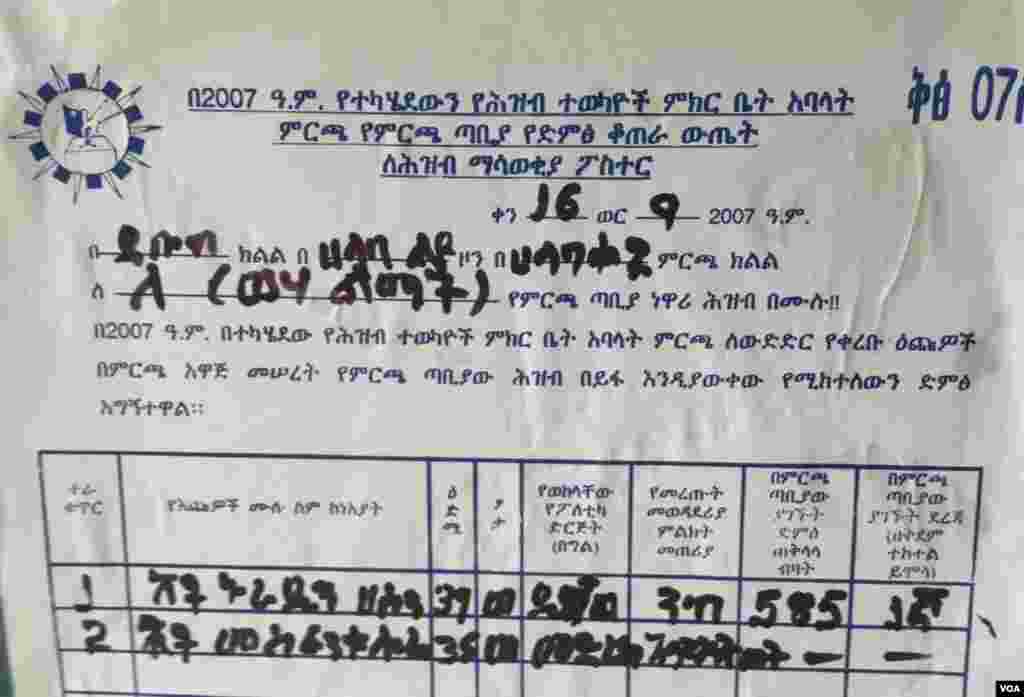 ቅፅ 07
በ2007 ዓ.ም. የተካሄደውን የሕዝብ ተወካዮች ምክር ቤት አባላት
ምርጫ የምርጫ ጣቢያ የድምፅ ቆጠራ ውጤት
ለሕዝብ ማሳወቂያ ፖስተር
ቀን 16 ወር 9 2007 ዓ.ም.
በ ደቡብ ክልል በ ሀላባ ልዩ ዞን በ ምርጫ ክልል
ለ ለ (መሃ ልማት) የምርጫ ጣቢያ ነዋሪ ሕዝብ በሙሉ!!
በ2007 ዓ.ም. በተካሄደው የሕዝብ ተወካዮች ምክር ቤት አባላት ምርጫ ለውድድር የቀረቡ ዕጩዎች
በምርጫ አዋጅ መሠረት የምርጫ ጣቢያው ሕዝብ በይፋ እንዲያውቀው የሚከተለውን ድምፅ
አግኝተዋል።
ተራ ቁጥር
የእጩዎች ሙሉ ስም ከነአያት
ዕድሜ
ፆታ
የወከላቸው የፖለቲካ ድርጅት (በግል)
የመረጡት መወዳደሪያ ምልክት መጠሪያ
በምርጫ ጣቢያው ያገኙት ድምፅ ጠቅላላ ብዛት
በምርጫ ጣቢያው ያገኙት ደረጃ ተከተል ይሞላ)
1 አቶ 37 ወ ንብ 585 1ኛ
2 አቶ ወ — —
VOA